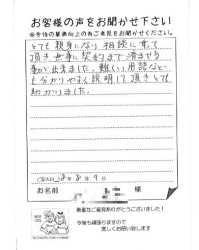 お客様の声をお聞かせ下さい
※今後の業務向上の為ご意見をお聞かせください。
とても親身になり相談にのって
頂き、無事に契約まで済ませる
事が出来ました。難しい用語など
も分かりやすく説明して頂きとても
助かりました。
8月9日
お名前 様
貴重なご意見ありがとうございました！
今後も頑張りますので
宜しくお願い致します